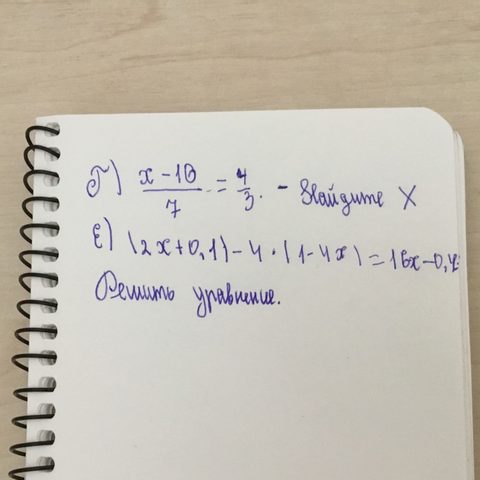 Г) x-10/7 = 4/3. - Найдите X
Е) (2x+0,1)-4·(1-4x)=16x-0,4.
Решить уравнение.